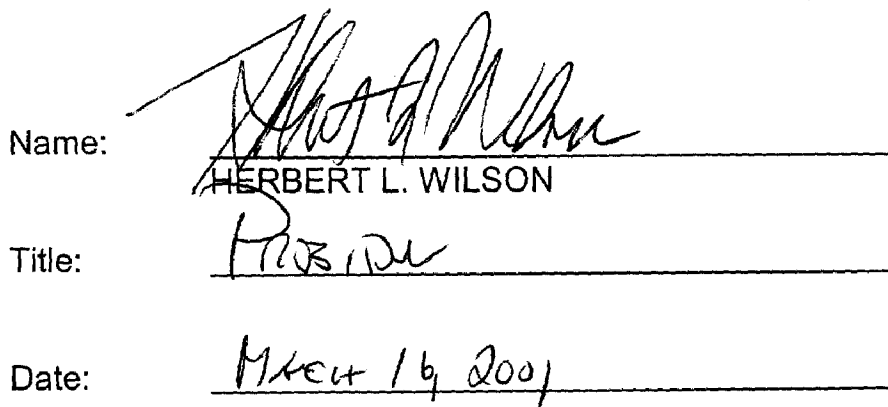 Name:
HERBERT L. WILSON
Title: President
Date: March 16, 2001